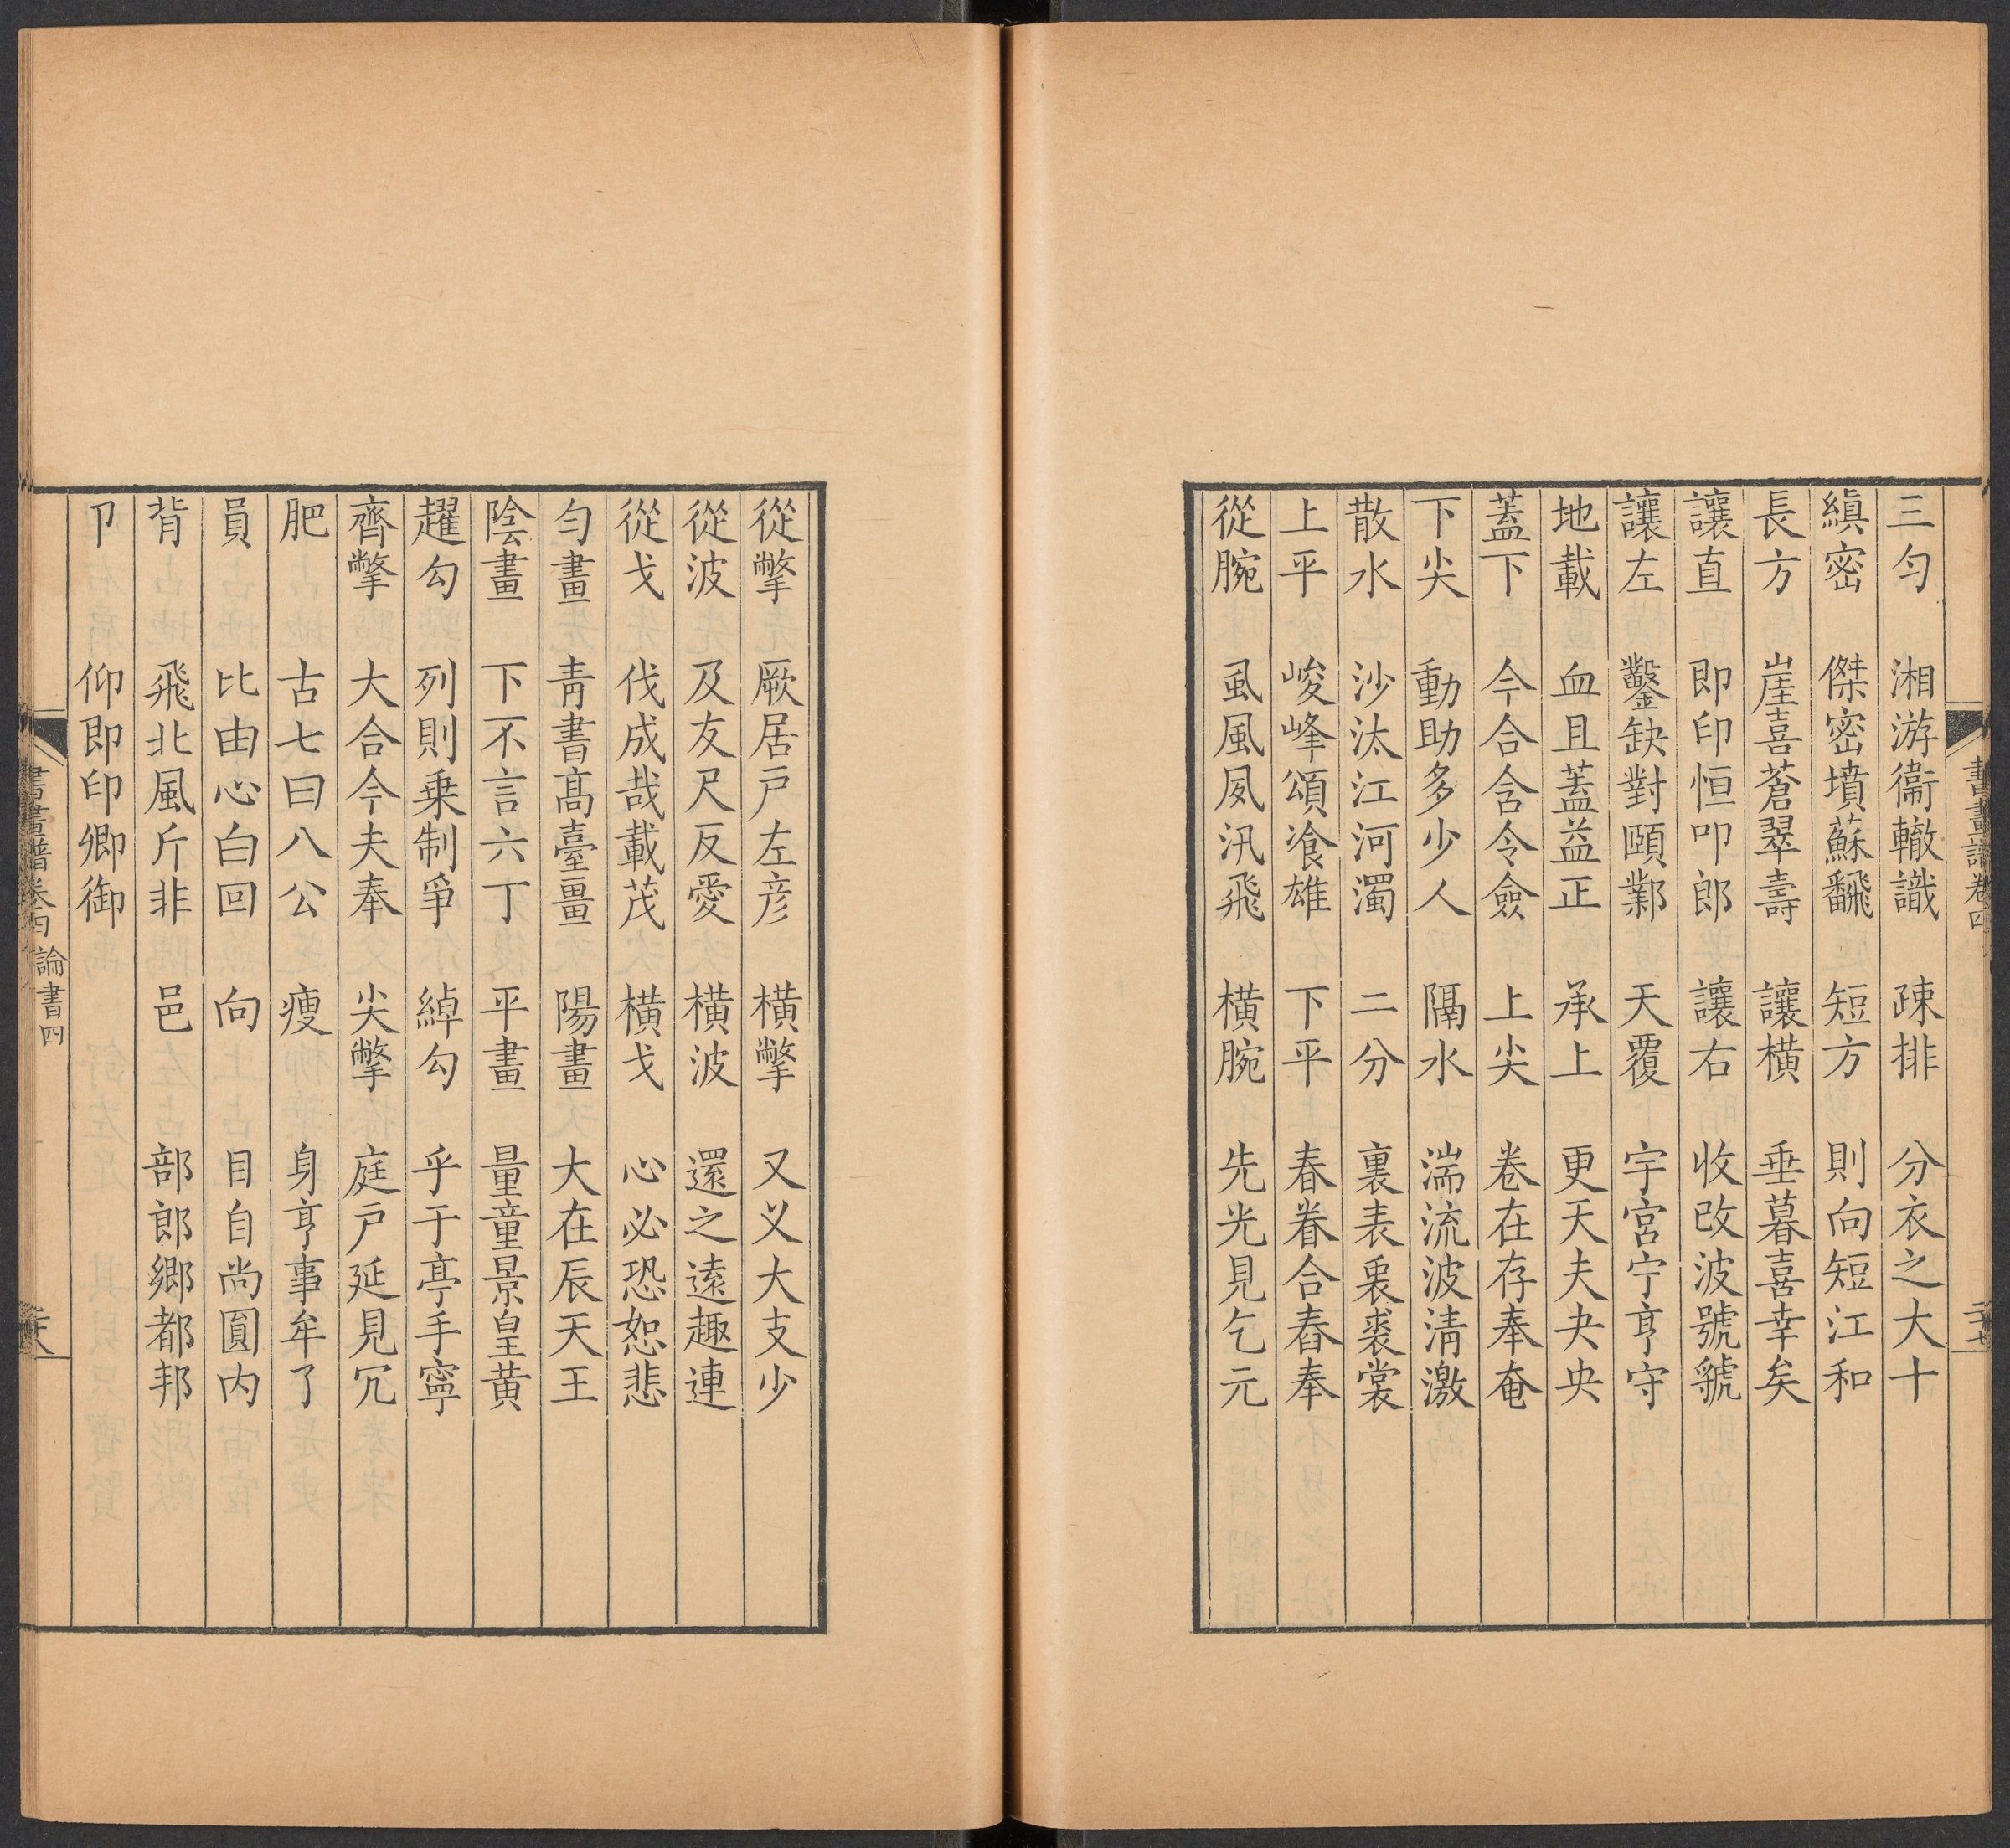 書畫譜卷四
二十七
三勻 湘游衞轍識 疎排 分衣之大十
縝密 傑密墳蘇飜 短方 則向短江和
長方 崖喜蒼翠壽 讓橫 垂暮喜幸矣
讓直 即印恒叩郎 讓右 收改波號
讓左 鑿缺對頤鄴 天覆 宇宮宁亨守
地載 血且蓋益正 承上 更天夫夬央
蓋下 今合含令僉 上尖 卷在存奉奄
下尖 動助多少人 隔水 湍流波清激
散水 沙汰江河濁 二分 裏表裘裳
上平 峻峰頌飡雄 下平 春眷合舂奉
從腕 風汛飛 橫腕 先光見乞元
從撆 厥居戸左彦 橫撆 又义大支少
從波 及友尺反愛 橫波 還之遠趣連
從戈 伐成哉載茂 橫戈 心必恐恕悲
勻畫 靑書髙臺畺 陽畫 大在辰天王
陰畫 下不言六丁 平畫 量童景皇黄
趯勾 列則乗制爭 綽勾 乎于亭手寧
齊撆 大合今夫奉 尖撆 庭戸延見冗
肥 古七曰八公 瘦 身亨事牟了
員 比由心白回 向 目自尚圓内
背 飛北風斤非 邑 部郎鄉都邦
卩 仰即印卿御
書畫譜卷四 論書四
二十八